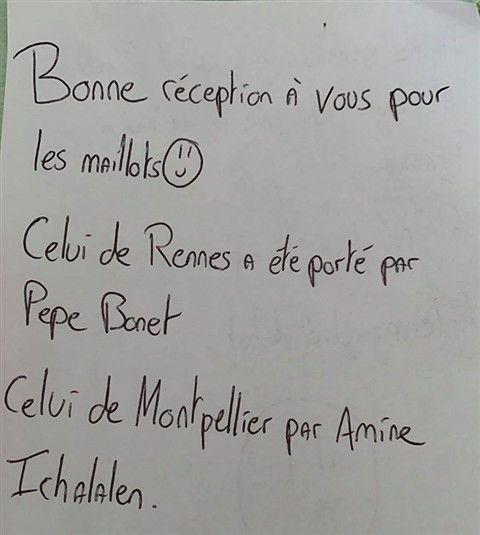 Bonne réception à vous pour
les maillots
Celui de Rennes a été porté par
Pepe Bonet
Celui de Montpellier par Amine
Ichalalen.